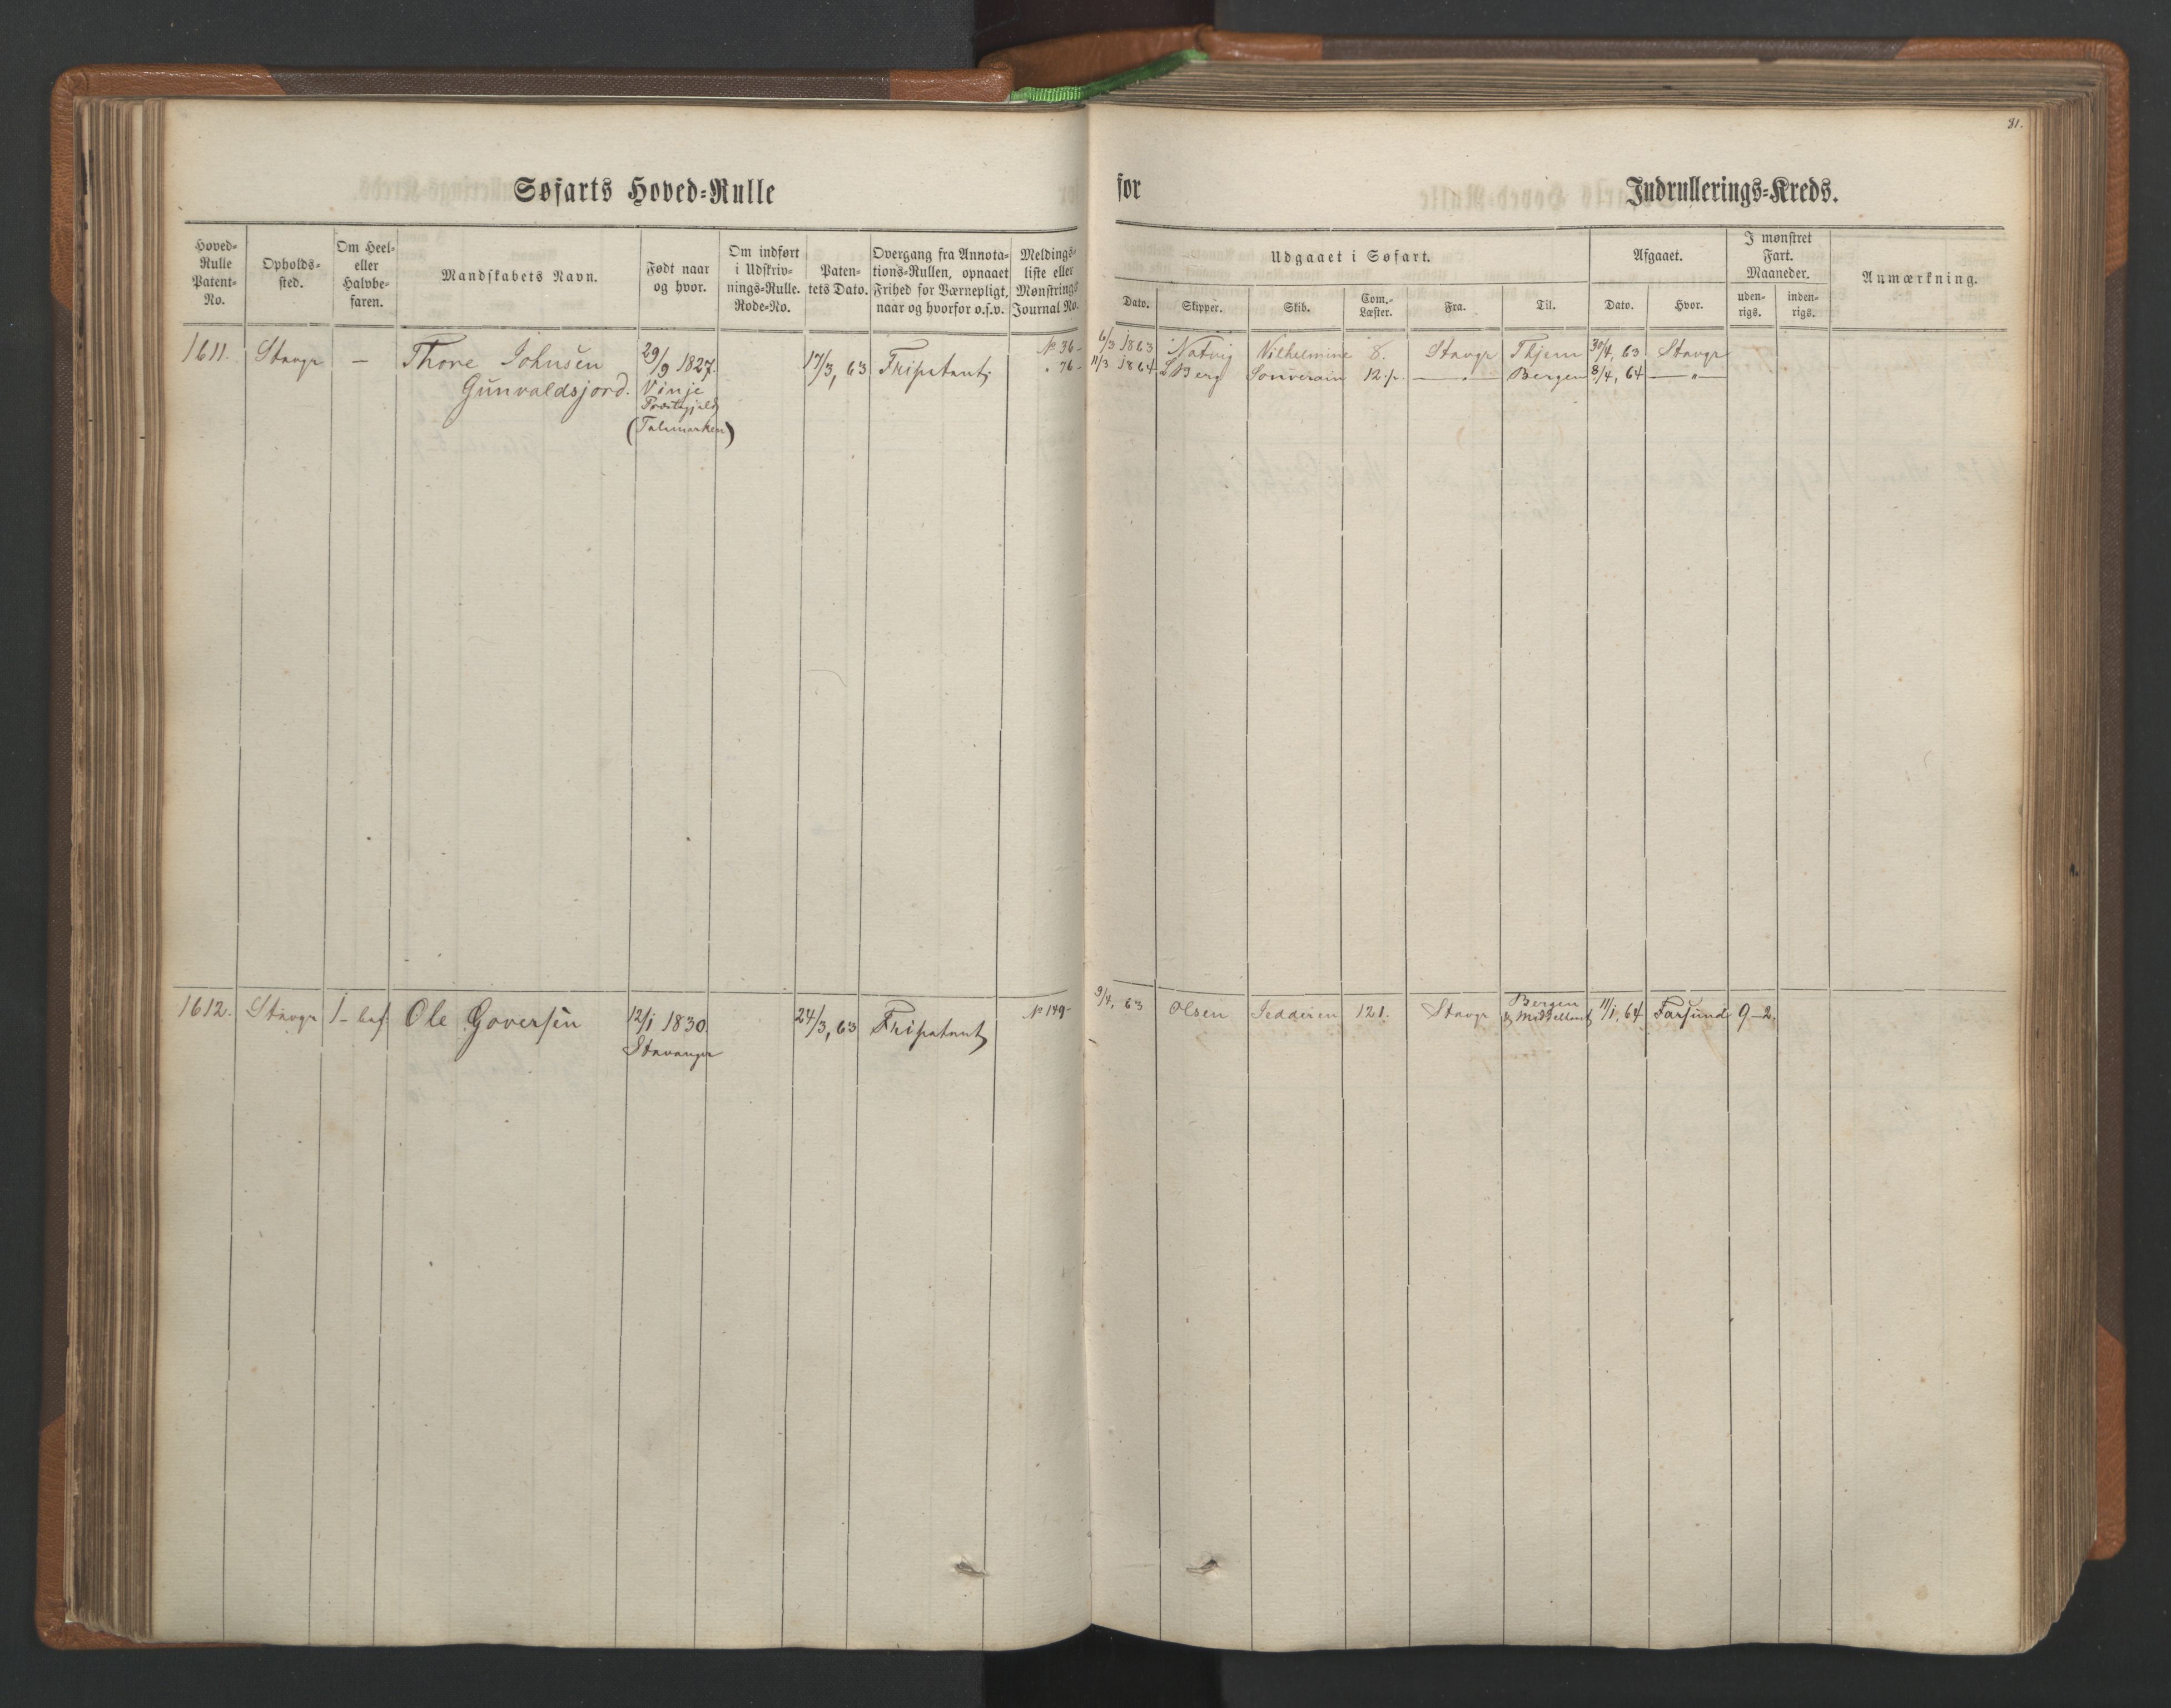 81.
Søfarts Hoved-Rulle
for
Indrullerings-Kreds.
Hoved-Rulle Patent-No.
Opholds-sted.
Om Heel- eller Halvbe-faren.
Mandskabets Navn.
Født naar og hvor.
Om indført i Udskriv-nings-Rulle. Rode-No.
Paten-tets Dato.
Overgang fra Annota-tions-Rullen, opnaaet Frihed for Værnepligt, naar og hvorfor o.s.v.
Meldings-liste eller Mønstrings Journal No.
Udgaaet i Søfart.
Dato.
Skipper.
Skib.
Com.-Læster.
Fra.
Til.
Afgaaet.
Dato.
Hvor.
I mønstret Fart. Maaneder.
uden-rigs.
inden-rigs.
Anmærkning.
1611. Stavgr — Thore Johnsen 29/9 1827. 17/3, 63 Fripatent № 36- 6/3 1863 Natvig Vilhelmine 8. Stavgr Thjem 30/4, 63 Stavgr
Gunvaldsjord. Vinje " 76- 11/3 1864 L Berg Souverain 12 — " — Bergen 8/4, 64 — " —
Præstegjeld
(Talemarken)
1612. Stavgr 1- bef Ole Goversen 12/1 1830. 24/3, 63 Fripatent № 149- 9/4, 63 Olsen Jedderen 121. Stavgr Bergen 11/1, 64 Farsund 9-2.
Stavanger & Middelhavet